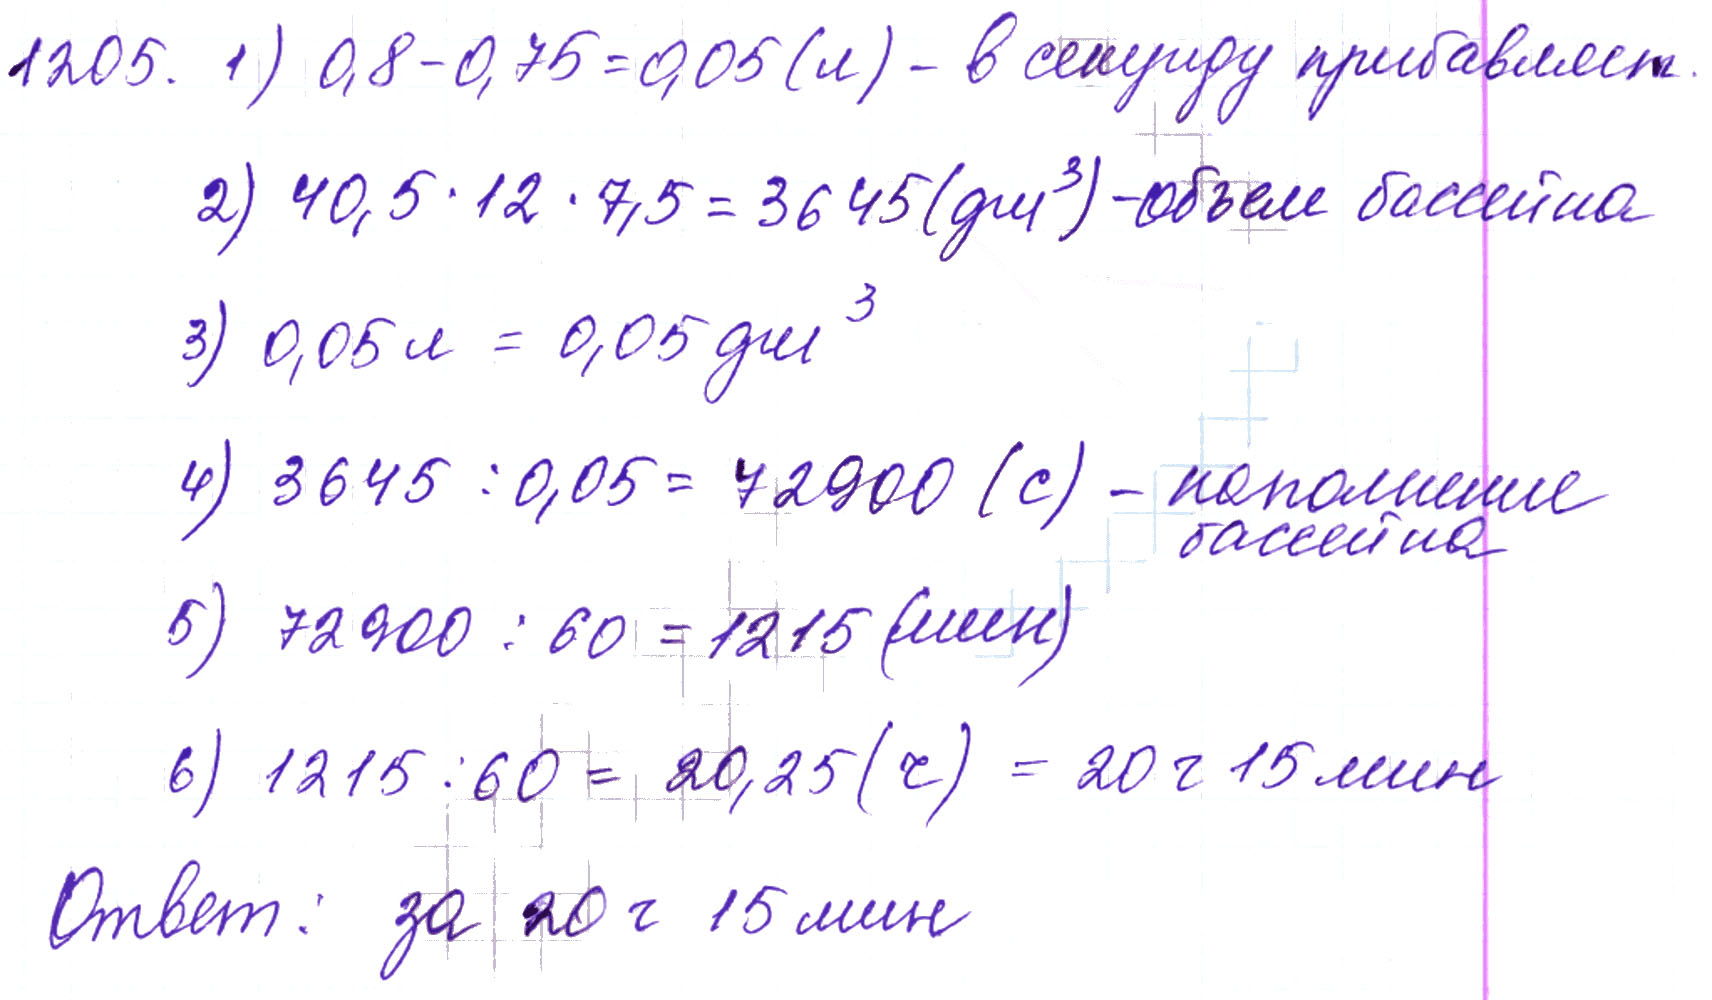 1205. 1) 0,8-0,75=0,05(л) - в секунду прибавляет.
2) 40,5·12·7,5=3645(дм³)-объем бассейна
3) 0,05л = 0,05дм³
4) 3645:0,05= 72900 (с) - наполнение
бассейна
5) 72900 : 60 =1215(мин)
6) 1215:60= 20,25(ч) = 20ч 15мин
Ответ: за 20ч 15мин